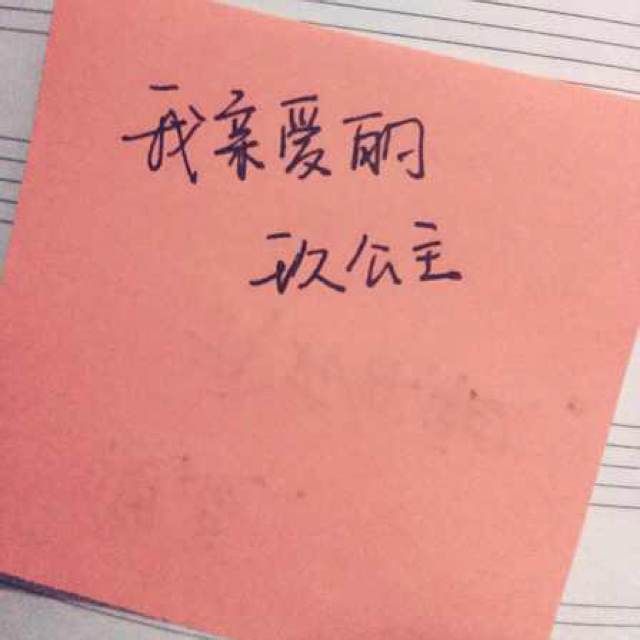 我亲爱的
玖公主